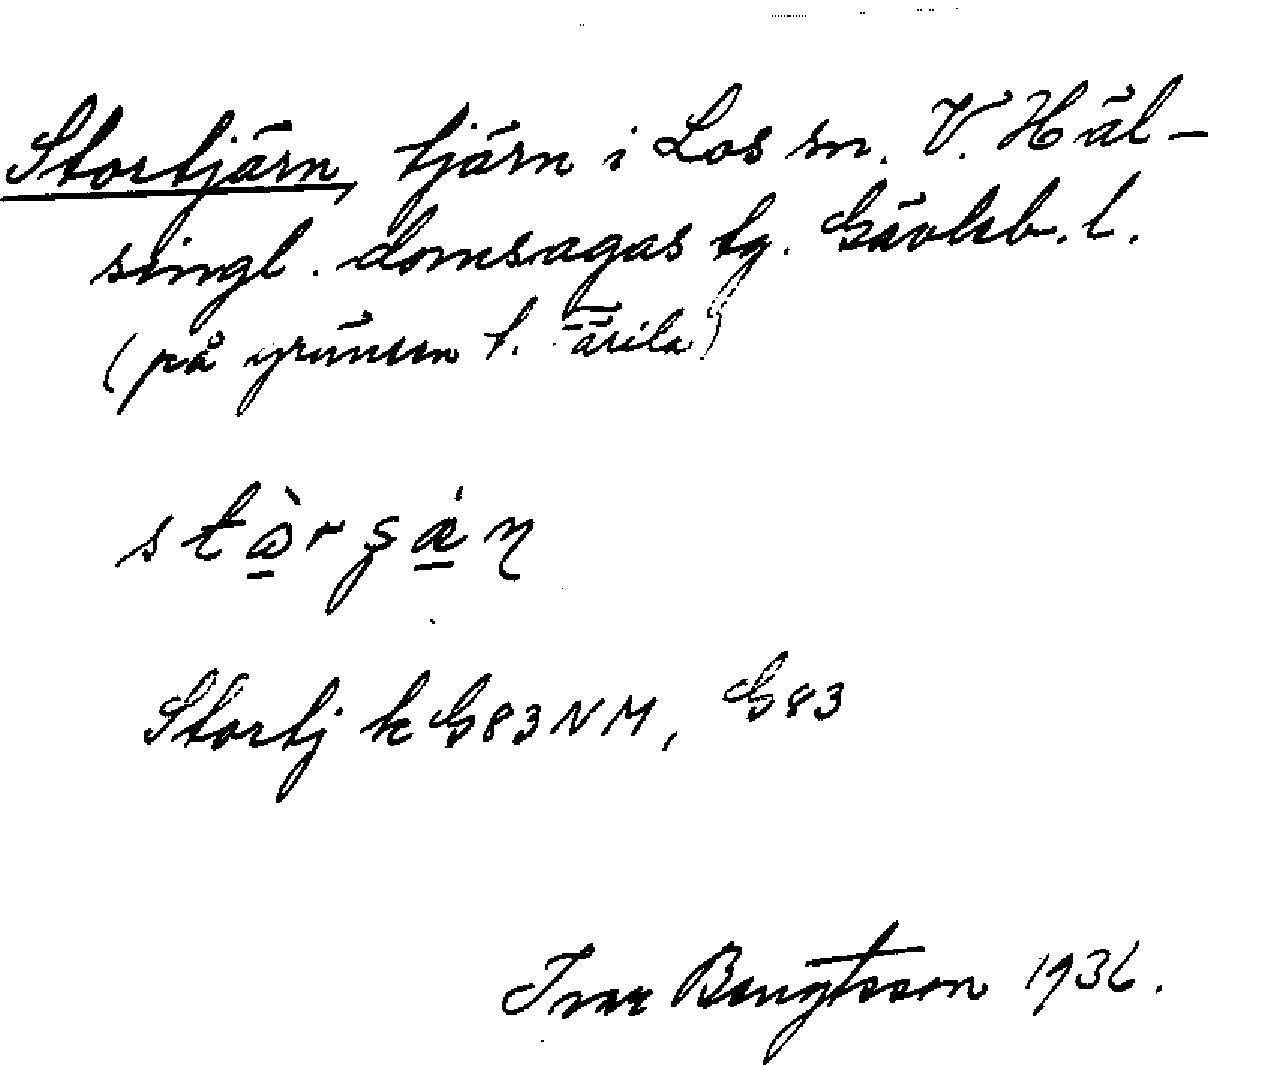 Stortjärn, tjärn i Los sn. V. Häl-
singl. domsagas tg. Gävleb. l.
(på gränsen t. Färila)
Stortj k G83NM, G83
Ivar Bengtsson 1936.